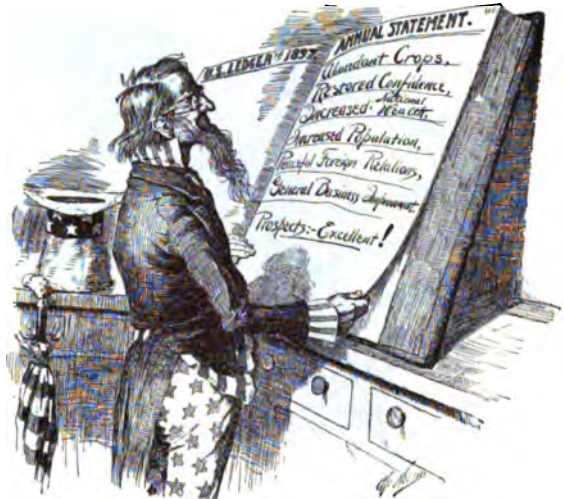 U.S. LEDGER 1897.
ANNUAL STATEMENT.
Abundant Crops,
Restored Confidence,
Increased National Wealth,
Increased Population,
Peaceful Foreign Relations,
General Business Improvement.
Prospects:- Excellent!